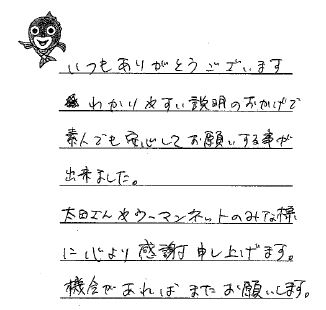 いつもありがとうございます
わかりやすい説明のおかげで
素人でも安心してお願いする事が
出来ました。
太田さんやウーマンネットのみな様
に心より感謝申し上げます。
機会があればまたお願いします。